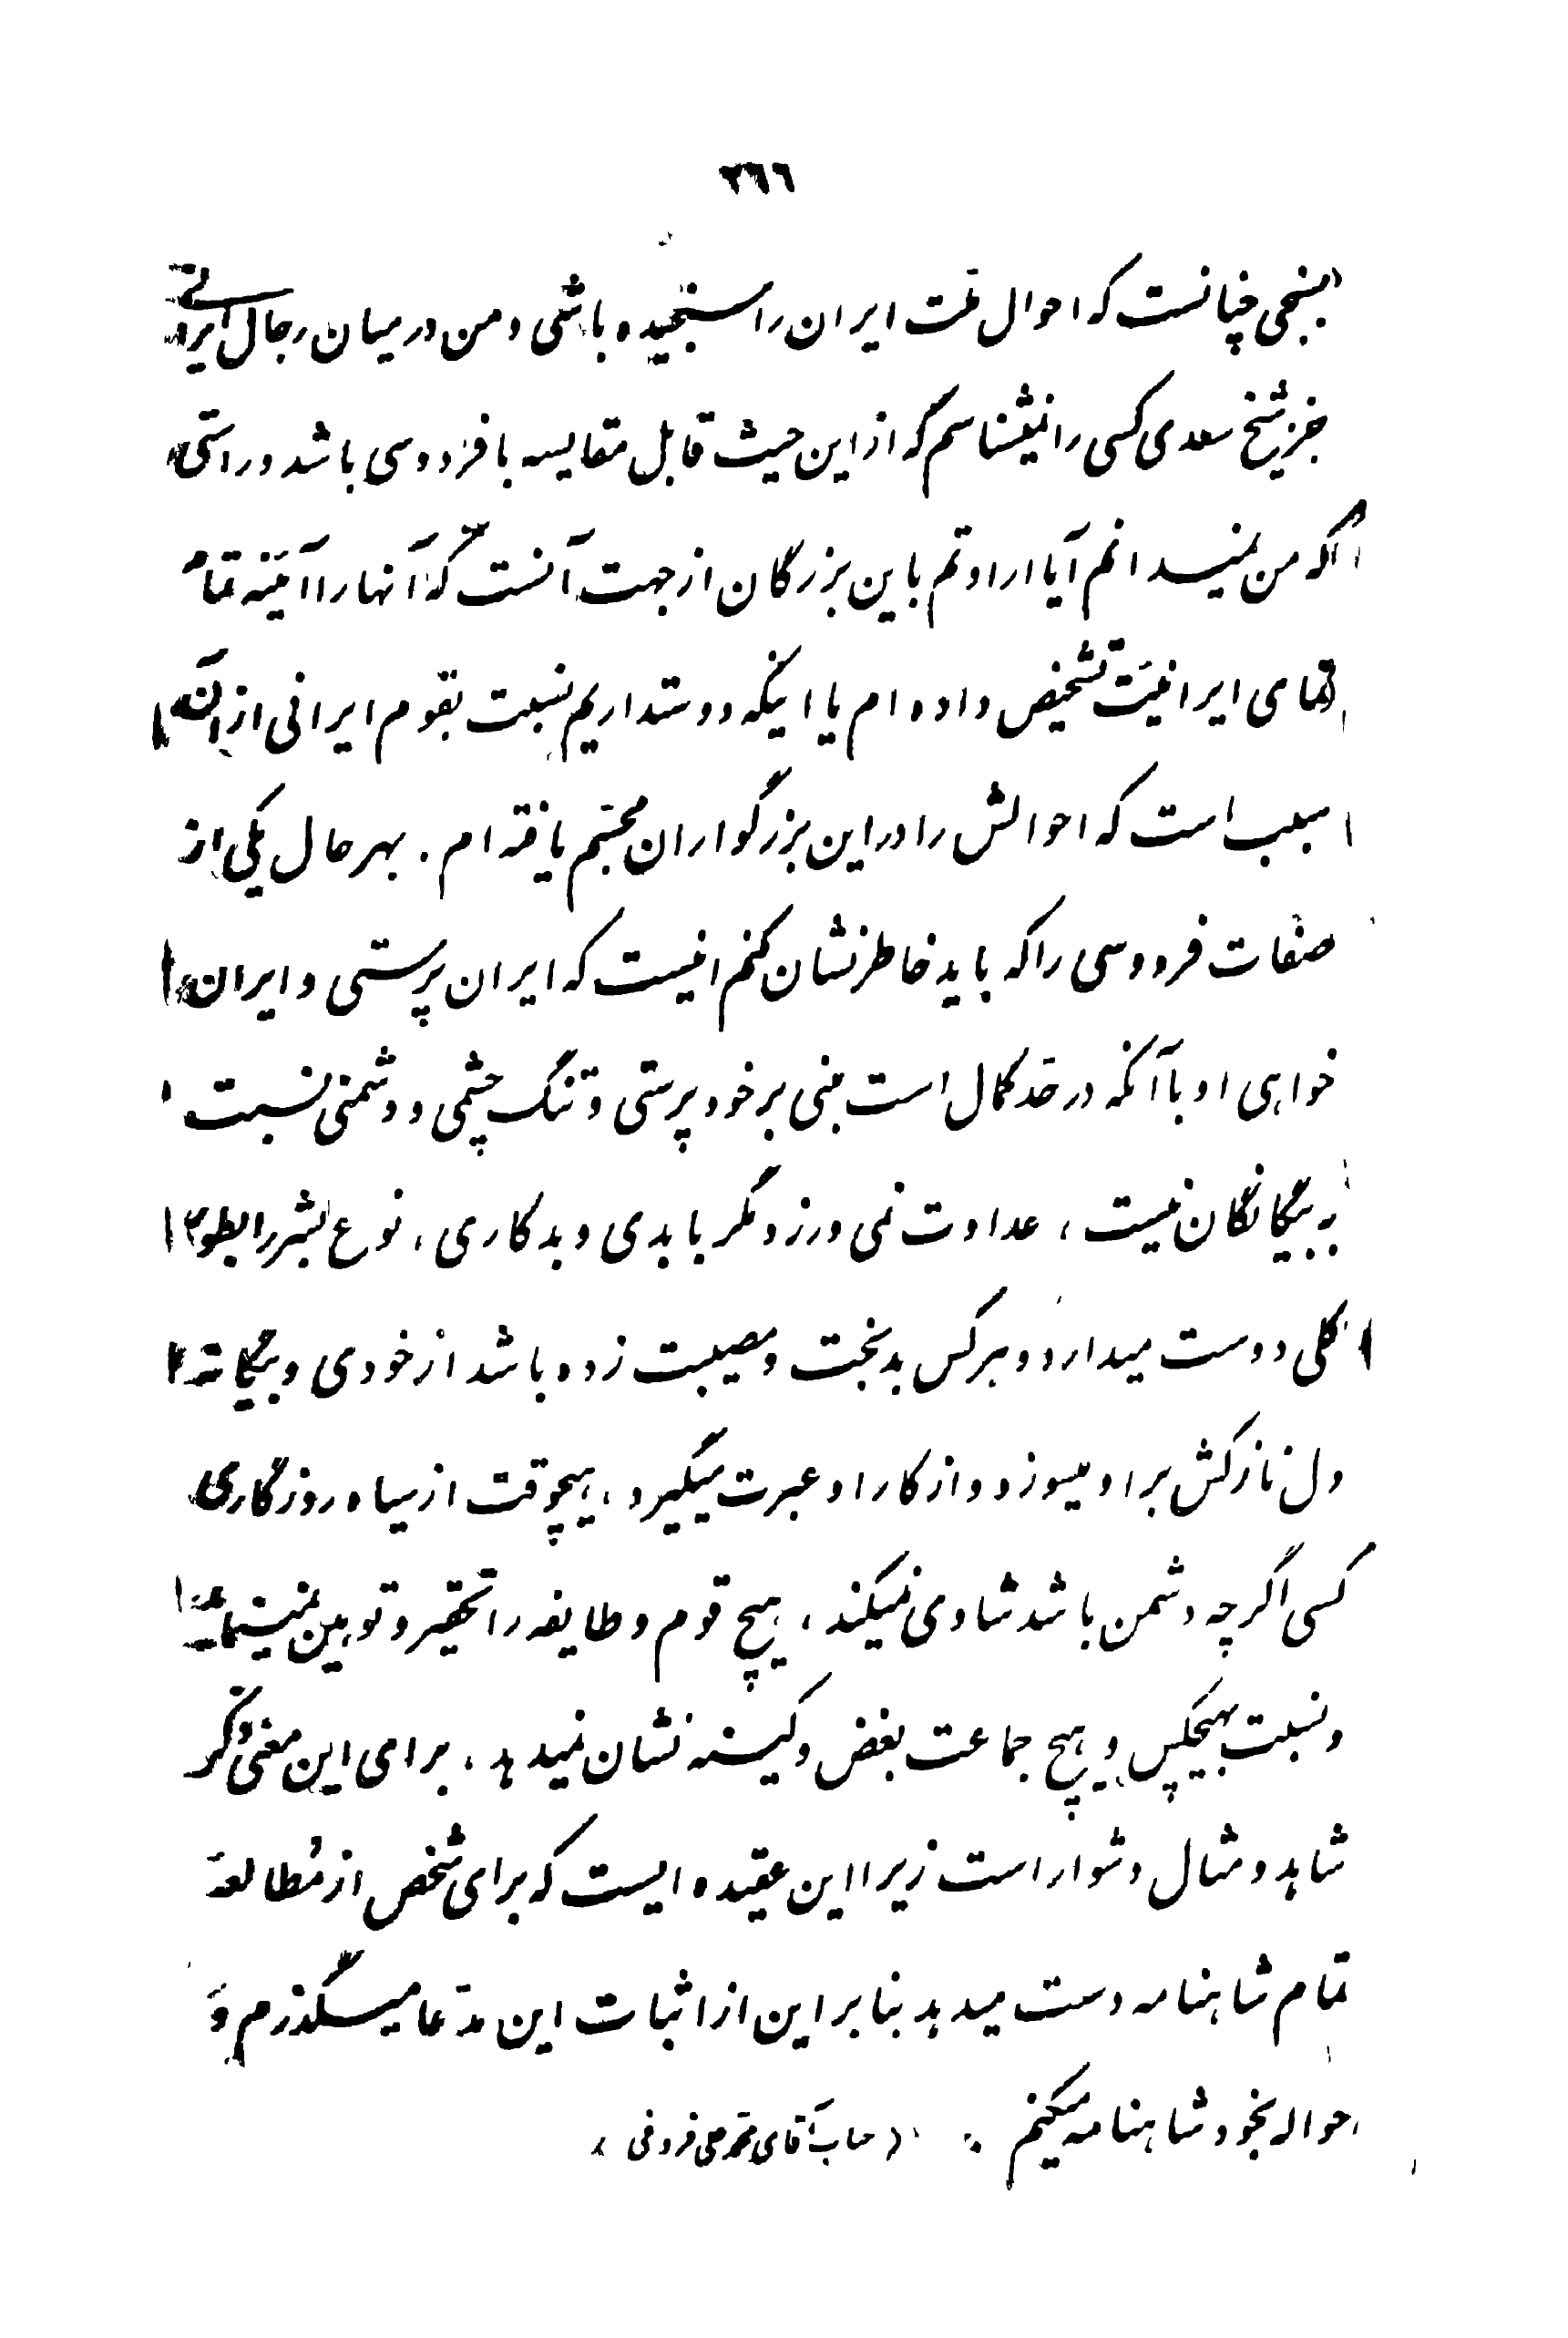 ٣٦٦
بسنجی چنانست که احوال ملت ایران را سنجیده باشی و من در میان رجال ایرانی
جز شیخ سعدی کسی را نمیشناسم که از این حیث قابل مقایسه با فردوسی باشد و راستی
اگر من نمیدانم آیا ارادتم باین بزرگان از جهت آنست که آنها را آئینه تمام
نمای ایرانیت تشخیص داده ام یا اینکه دوستداریم نسبت بقوم ایرانی از آن
سبب است که احوالش را در این بزرگواران مجسم یافته ام . بهر حال یکی از
صفات فردوسی را که باید خاطر نشان کنم اینست که ایران پرستی و ایران
خواهی او با آنکه در حد کمال است مبنی بر خود پرستی و تنگ چشمی و دشمنی نسبت
به بیگانگان نیست ، عداوت نمی ورزد مگر با بدی و بدکاری ، نوع بشر را بطور
کلی دوست میدارد و هر کس بدبخت و مصیبت زده باشد از خودی و بیگانه
دل نازکش بر او میسوزد و از کار او عبرت میگیرد ، هیچوقت از سیاه روزگاری
کسی اگر چه دشمن باشد شادی نمیکند ، هیچ قوم و طایفه را تحقیر و توهین نمینماید
و نسبت بهیچکس و هیچ جماعت بغض و کینه نشان نمیدهد ، برای این معنی ذکر
شاهد و مثال دشوار است زیرا این عقیده ایست که برای شخص از مطالعه
تمام شاهنامه دست میدهد بنابر این از اثبات این مدعا میگذرم و
حواله بخود شاهنامه میکنم . ( جناب آقای محمد علی فروغی )